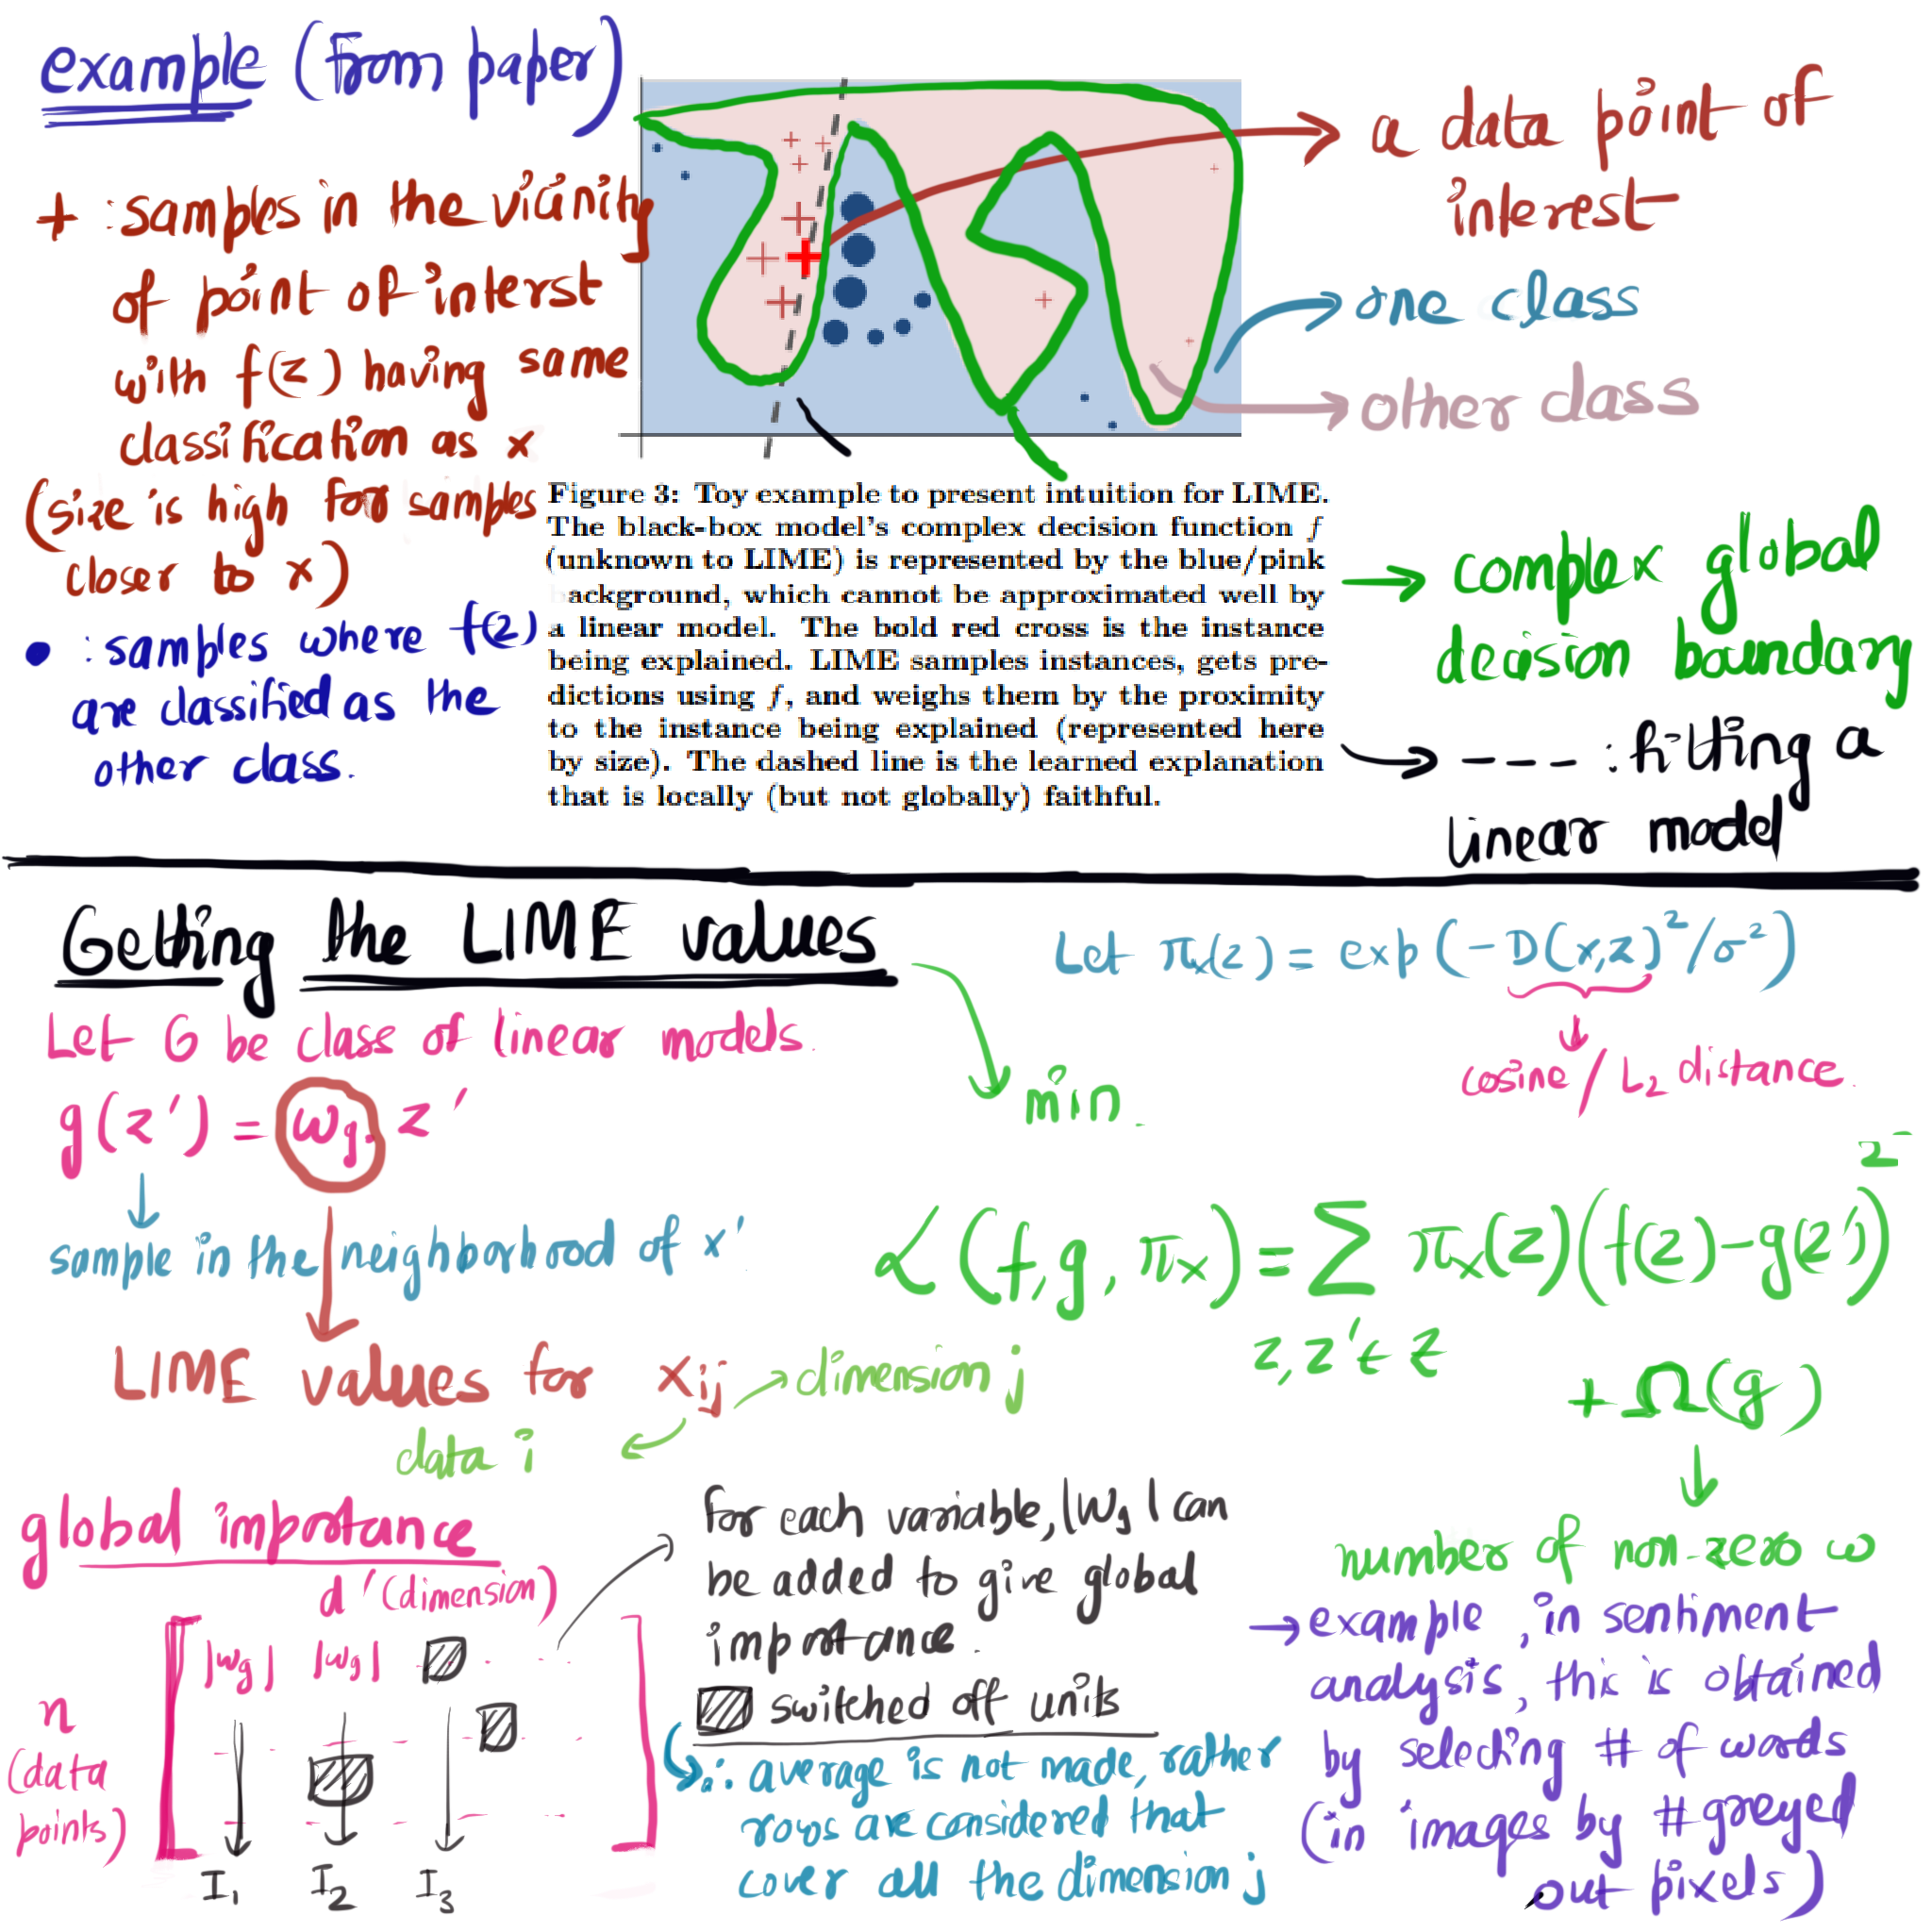 example (from paper)
+ : samples in the vicinity
of point of interst
with f(z) having same
classification as x
(size is high for samples
closer to x)
• : samples where f(z)
are classified as the
other class.
a data point of
interest
one class
other class
Figure 3: Toy example to present intuition for LIME.
The black-box model's complex decision function f
(unknown to LIME) is represented by the blue/pink
background, which cannot be approximated well by
a linear model. The bold red cross is the instance
being explained. LIME samples instances, gets pre-
dictions using f, and weighs them by the proximity
to the instance being explained (represented here
by size). The dashed line is the learned explanation
that is locally (but not globally) faithful.
→ complex global
decision boundary
→ - - - - : fitting a
linear model
Getting the LIME values
Let G be class of linear models.
g(z') = w_g. z'
sample in the neighborhood of x'
LIME values for x_ij → dimension j
data i
Let π_x(z) = exp(-D(x,z)²/σ²)
cosine / L₂ distance.
min
ℒ(f, g, π_x) = Σ π_x(z)(f(z)-g(z'))²
z, z' ∈ Z
+ Ω(g)
number of non-zero w
→ example, in sentiment
analysis, this is obtained
by selecting # of words
(in images by # greyed
out pixels)
global importance
d' (dimension)
n
(data
points)
|w_g| |w_g|
I₁ I₂ I₃
for each variable, |W_g| can
be added to give global
importance.
switched off units
∴ average is not made, rather
rows are considered that
cover all the dimension j